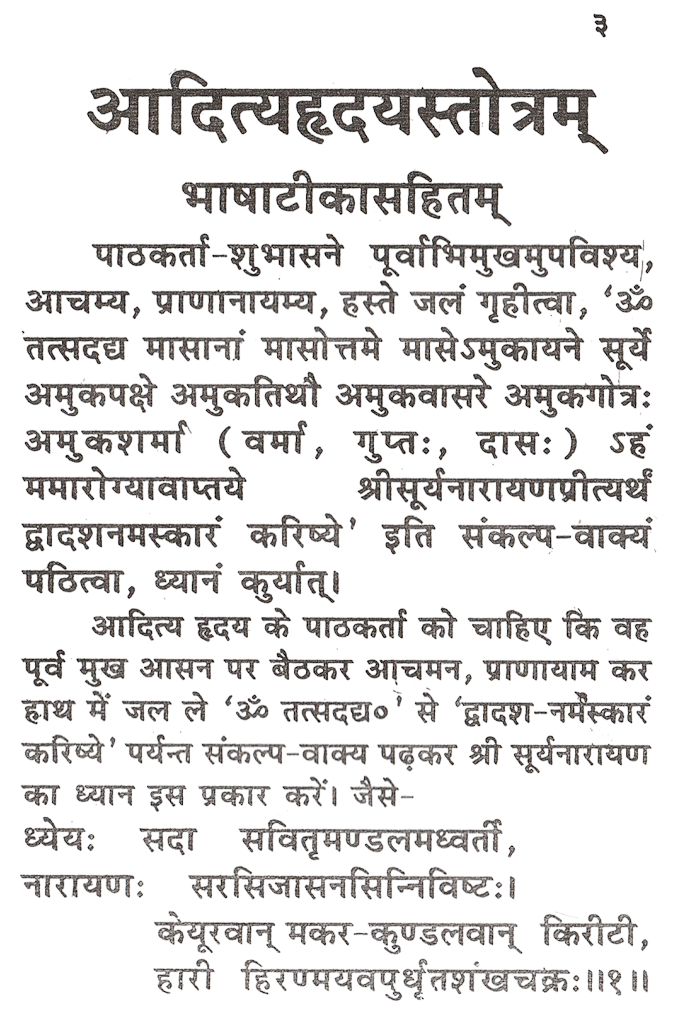 ३
आदित्यहृदयस्तोत्रम्
भाषाटीकासहितम्
पाठकर्ता-शुभासने पूर्वाभिमुखमुपविश्य,
आचम्य, प्राणानायम्य, हस्ते जलं गृहीत्वा, ‘ॐ
तत्सदद्य मासानां मासोत्तमे मासेऽमुकायने सूर्ये
अमुकपक्षे अमुकतिथौ अमुकवासरे अमुकगोत्रः
अमुकशर्मा ( वर्मा, गुप्तः, दासः) ऽहं
ममारोग्यावाप्तये श्रीसूर्यनारायणप्रीत्यर्थं
द्वादशनमस्कारं करिष्ये’ इति संकल्प-वाक्यं
पठित्वा, ध्यानं कुर्यात्।
आदित्य हृदय के पाठकर्ता को चाहिए कि वह
पूर्व मुख आसन पर बैठकर आचमन, प्राणायाम कर
हाथ में जल ले ‘ॐ तत्सदद्य०’ से ‘द्वादश-नर्मस्कारं
करिष्ये’ पर्यन्त संकल्प-वाक्य पढ़कर श्री सूर्यनारायण
का ध्यान इस प्रकार करें। जैसे-
ध्येयः सदा सवितृमण्डलमध्वर्ती,
नारायणः सरसिजासनसिन्निविष्टः।
केयूरवान् मकर-कुण्डलवान् किरीटी,
हारी हिरण्मयवपुर्धृतशंखचक्रः॥१॥